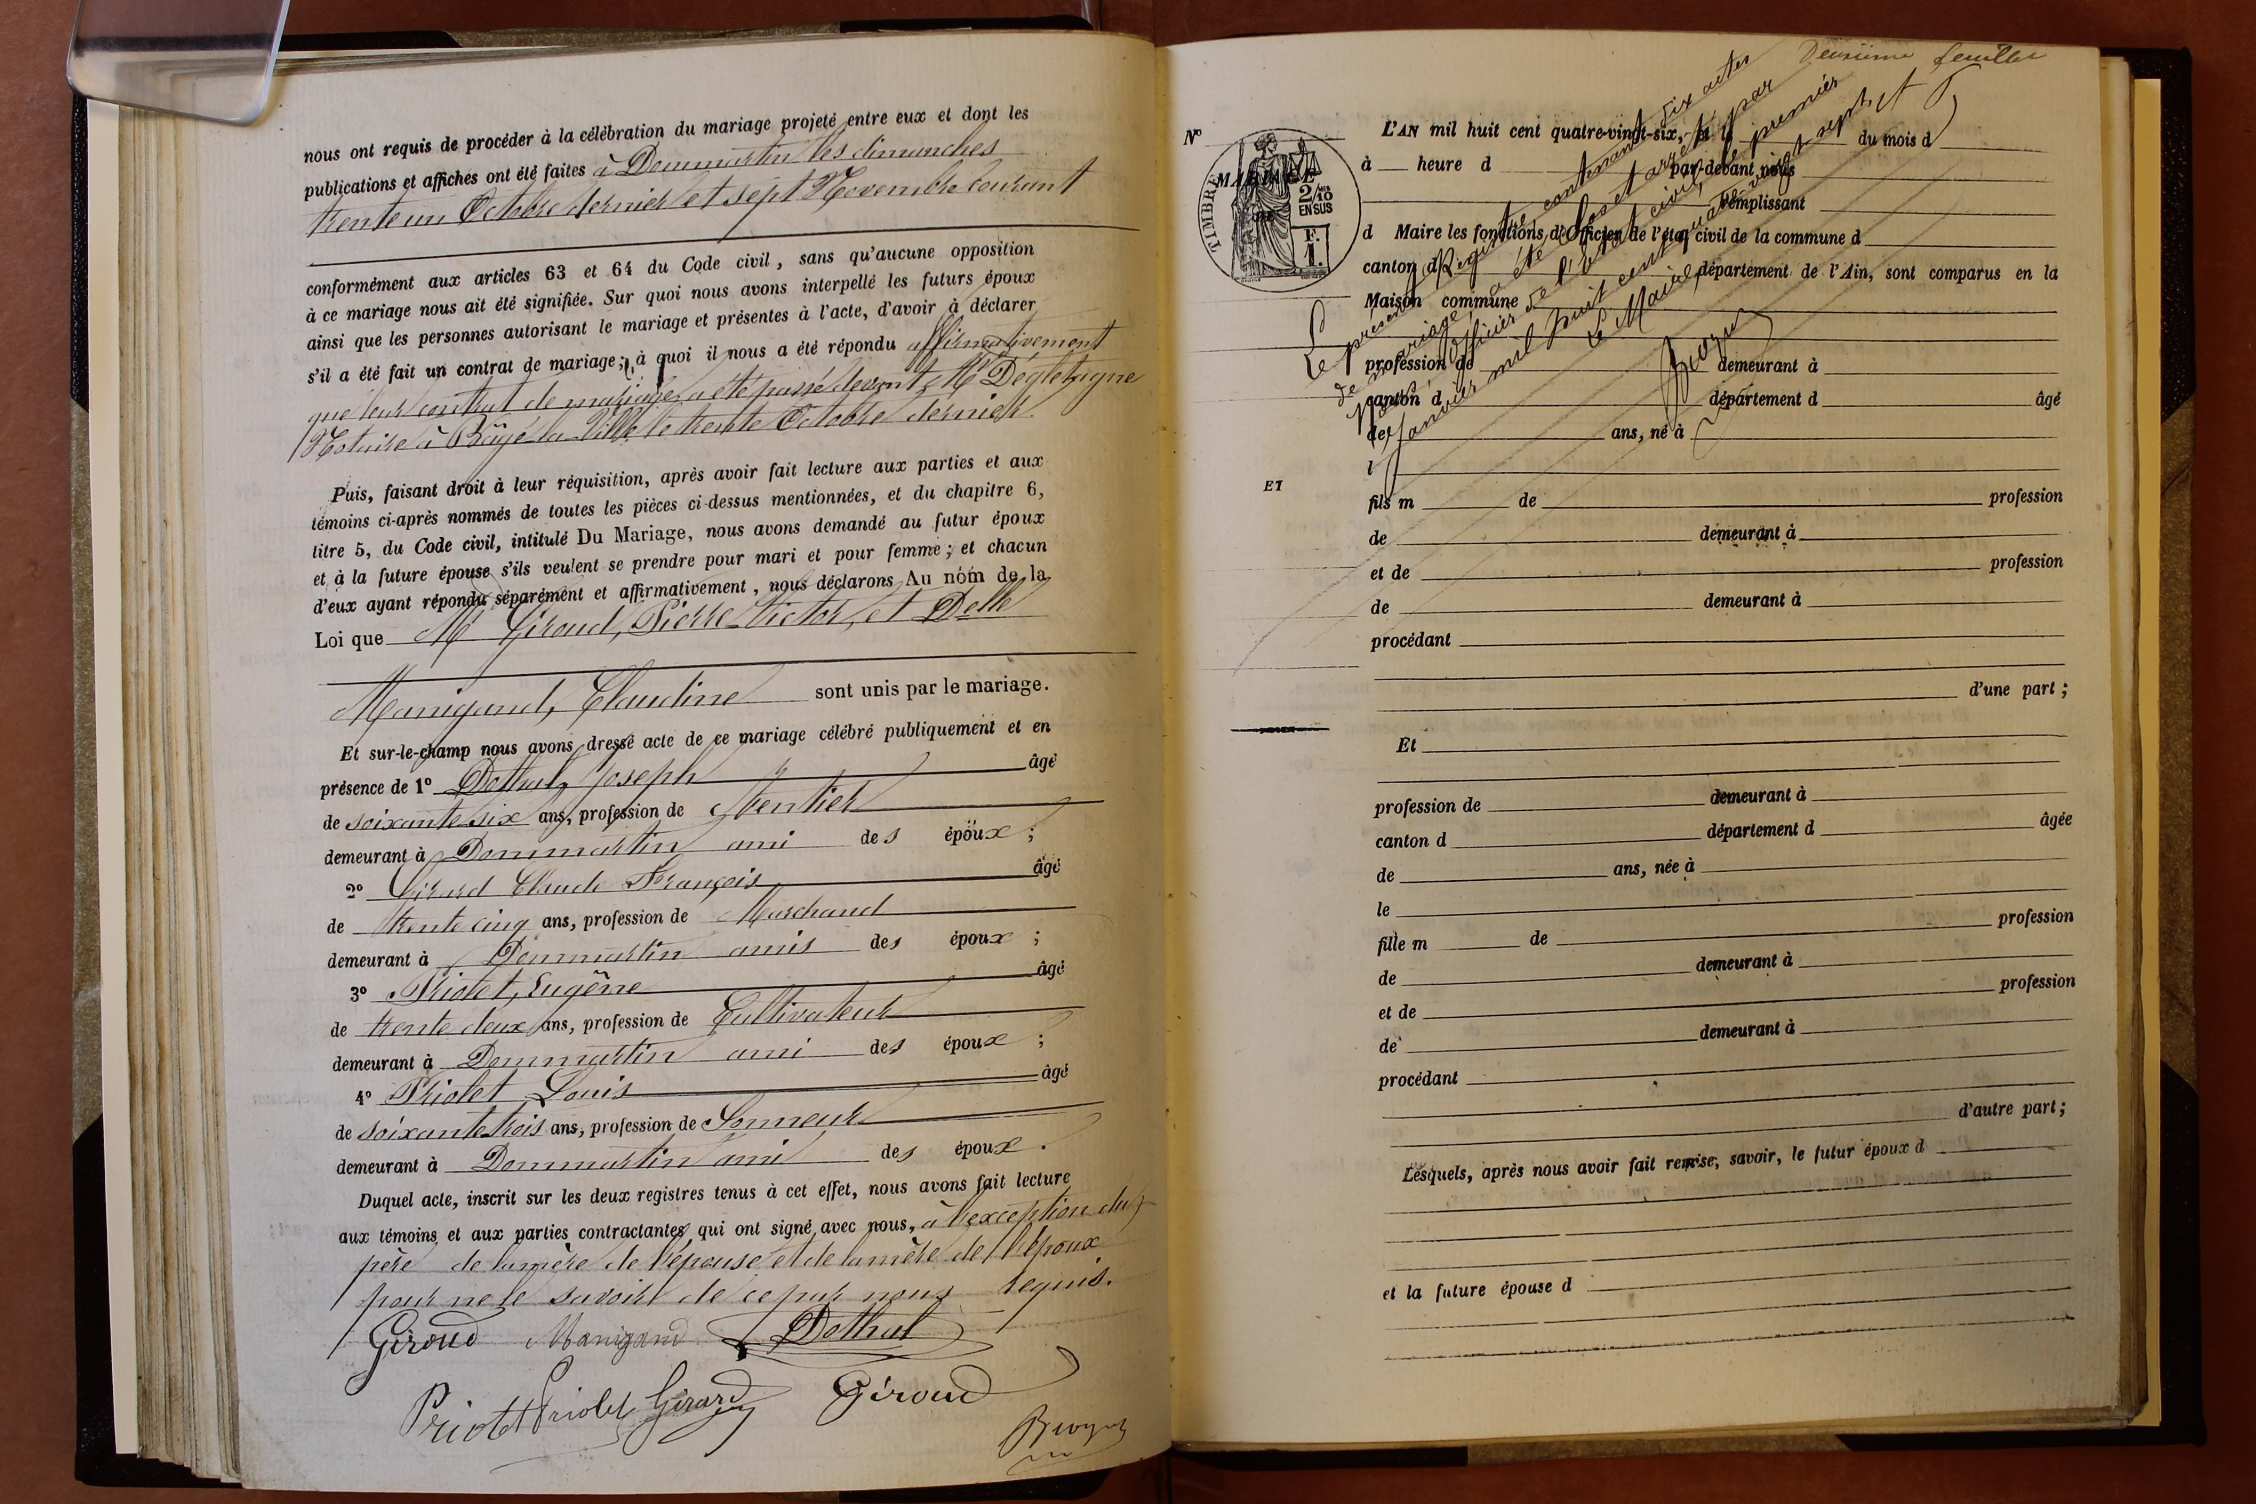 nous ont requis de procéder à la célébration du mariage projeté entre eux et dont les
publications et affiches ont été faites à Dommartin les dimanches
trente un Octobre dernier et sept Novembre courant
conformément aux articles 63 et 64 du Code civil, sans qu'aucune opposition
à ce mariage nous ait été signifiée. Sur quoi nous avons interpellé les futurs époux
ainsi que les personnes autorisant le mariage et présentes à l'acte, d'avoir à déclarer
s'il a été fait un contrat de mariage; à quoi il nous a été répondu affirmativement
que leur contrat de mariage a été passé devant Me
Notaire à Bâgé la Ville le trente Octobre dernier.
Puis, faisant droit à leur réquisition, après avoir fait lecture aux parties et aux
témoins ci-après nommés de toutes les pièces ci-dessus mentionnées, et du chapitre 6,
titre 5, du Code civil, intitulé Du Mariage, nous avons demandé au futur époux
et à la future épouse s'ils veulent se prendre pour mari et pour femme; et chacun
d'eux ayant répondu séparément et affirmativement, nous déclarons Au nom de la
Loi que Mr Giroud, Pierre Victor, et Delle
Manigand, Claudine sont unis par le mariage.
Et sur-le-champ nous avons dressé acte de ce mariage célébré publiquement et en
présence de 1º Dothal, Joseph âgé
de soixante six ans, profession de Rentier
demeurant à Dommartin ami des époux ;
2º Girard Claude François âgé
de trente cinq ans, profession de Marchand
demeurant à Dommartin amis des époux ;
3º Priolet, Eugène âgé
de trente deux ans, profession de Cultivateur
demeurant à Dommartin ami des époux ;
4º Priolet Louis âgé
de soixante trois ans, profession de Sonneur
demeurant à Dommartin ami des époux .
Duquel acte, inscrit sur les deux registres tenus à cet effet, nous avons fait lecture
aux témoins et aux parties contractantes qui ont signé avec nous, à l'exception du
père de la mère de l'épouse et de la mère de l'époux
pour ne le savoir de ce par nous requis.
Giroud Manigand Dothal
Priolet Priolet Girard Giroud
Deuxième feuillet
Nº
MARIAGE
TIMBRE
2/10
EN SUS
F.
1.
ET
L'AN mil huit cent quatre-vingt-six, et le du mois d
à heure d par-devant nous
remplissant
d Maire les fonctions d'Officier de l'état civil de la commune d
canton d département de l'Ain, sont comparus en la
Maison commune
profession de demeurant à
canton d département d âgé
de ans, né à
l
fils m de profession
de demeurant à
et de profession
de demeurant à
procédant
d'une part ;
Et
profession de demeurant à
canton d département d âgée
de ans, née à
le
fille m de profession
de demeurant à
et de profession
de demeurant à
procédant
d'autre part ;
Lesquels, après nous avoir fait remise, savoir, le futur époux d
et la future épouse d
Le présent Registre contenant six actes
de mariage, a été clos et arrêté par
Nous Officier de l'état civil, le premier
Janvier mil huit cent quatre vingt sept
Le Maire,